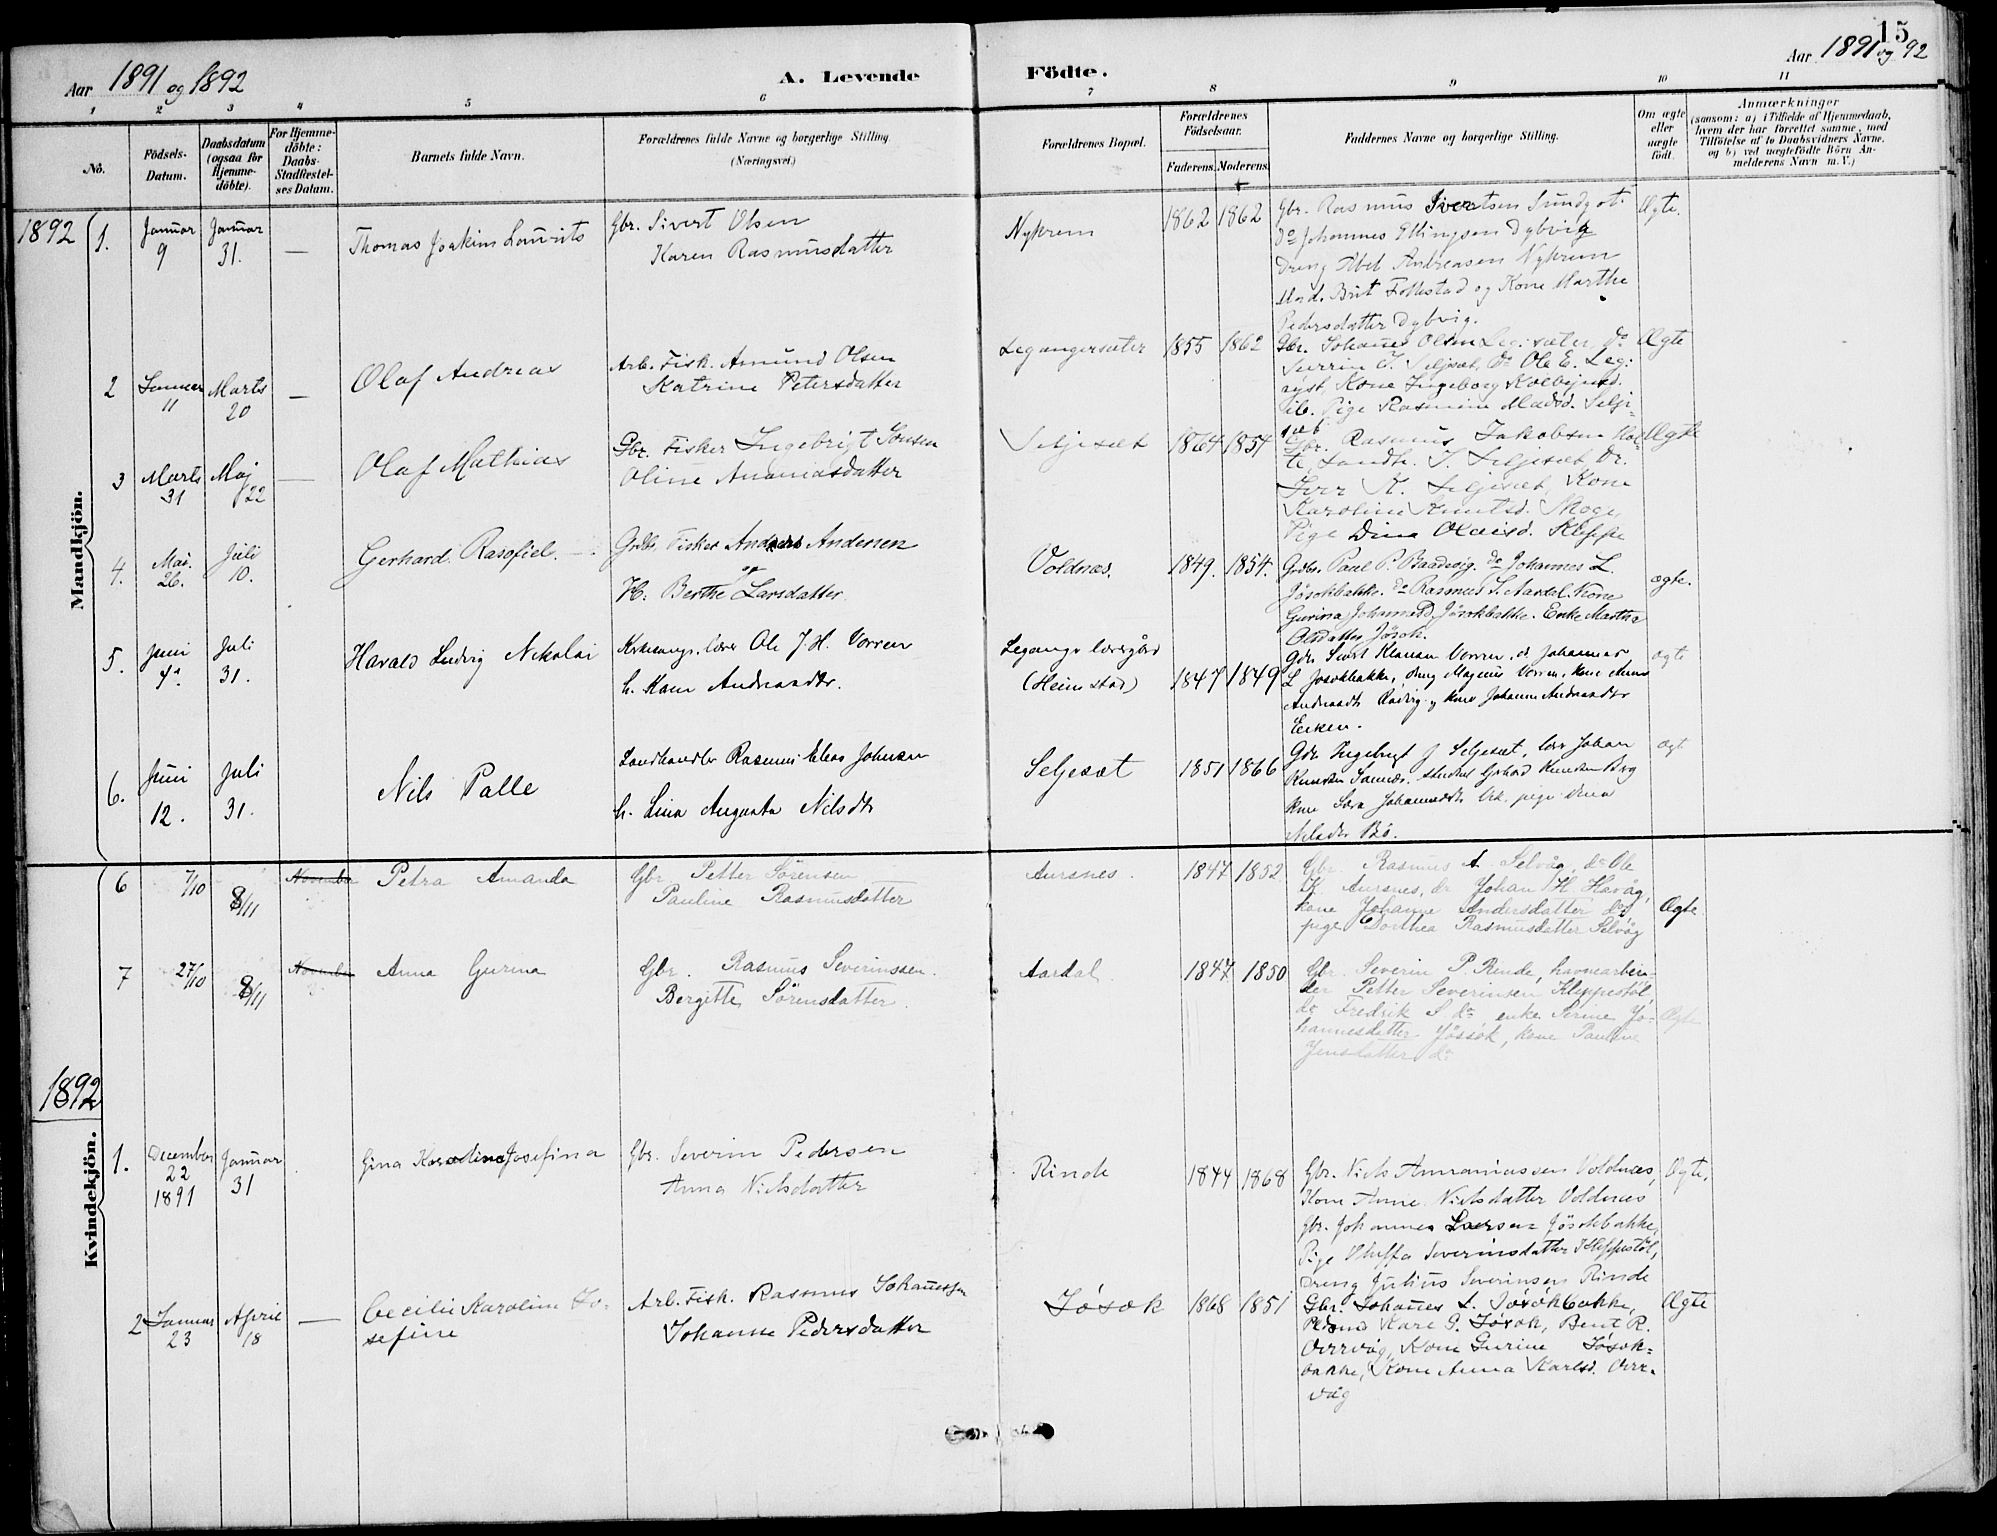 15
Aar 1891 og 1892
A. Levende Födte.
Aar 1891 og 92
1 2 3 4 5 6 7 8 9 10 11
No.
Födsels-Datum.
Daabsdatum (ogsaa for Hjemme-döbte).
For Hjemme-döbte: Daabs-Stadfæstel-ses Datum.
Barnets fulde Navn.
Forældrenes fulde Navne og borgerlige Stilling.
(Næringsvei.)
Forældrenes Bopæl.
Forældrenes Födselsaar.
Faderens. Moderens.
Faddernes Navne og borgerlige Stilling.
Om ægte eller uægte födt.
Anmærkninger
(saasom: a) i Tilfælde af Hjemmedaab,
hvem der har forrettet samme, med
Tilföielse af to Daabsvidners Navne,
og b) ved uægtefödte Börn An-
melderens Navn m. V.)
Mandkjön.
1892
1. Januar 9 Januar 31. — Thomas Joakim Lauvits
Gbr. Sivert Olsen
Karen Rasmusdatter
Nykrem 1862 1862
Gbr. Rasmus Sivertsen Sundgot.
Do Johannes Ellingsen Dybvig
Dreng Abel Andreasen Nykrem
Brit Folkestad og Kone Marthe
Pedersdatter Dybvig.
Ægte.
2 Januar 11 Marts 20 — Olaf Andreas
Arb. Fisk. Amund Olsen
Katrine Petersdatter
Legangersæter 1855 1862
Gbr. Johannes Olsen Leg:sæter, do
Severin J. Seljesæt, do Ole E. Leg:
Kone Ingeborg
Pige Rasmine Madsd. Selje-
sæt
Ægte
3 Marts 31 Maj 22 — Olaf Mathias
Gbr. Fisker Ingebrigt Jonsen
Oline Ananiasdatter
Seljesæt 1864 1854
Gbr. Rasmus Jakobsen
Landh. J. Seljesæt, Dr.
Iver K. Seljesæt, Kone
Karoline Knutsd. Skoge,
Pige Dina Olaisd. Kleppe
Ægte
4. Mai. 26. Juli 10. Gerhard Rasofiel. —
Grdbr. Fisker Anders Andersen
og
H. Berthe Larsdatter
Voldnæs. 1849. 1854.
Grdbr. Paul P. Baadsvig. do Johannes L.
Jösokbakke. do Rasmus S. Aardal. Kone
Gurina Johannesd. Jösokbakke. Enke Martha
Olsdatter Jösok.
ægte.
5. Juni 4. Juli 31. Harald Ludvig Nikolai
Kirkesangr. lærer Ole J. H. Vorren
h. Kane Andreasdtr.
Legangr lærergård
(Heimstad) 1847 1849
Gdbr. Sivert Klausen Vorren, do Johannes
L Jösokbakke, dreng Magnus Vorren, kone Anne
Andreasdtr og kone Johanne Andreasdtr
Eiksen.
ægte
6. Juni 12. Juli 31. Nils Palle
Landhandler Rasmus Elias Johnsen
h. Lina Augusta Nilsdtr
Seljesæt 1851 1866
Gdbr Ingebrigt J Seljesæt, lær Johan
Knutsen student Gerhard Knutsen Berg
kone Sara Johannesdtr pige Dina
Bö.
ægt
Kvindekjön.
6 7/10 8/11 November Petra Amanda
Gbr. Petter Sörensen
Pauline Rasmusdatter
Aursnes. 1847 1852
Gbr. Rasmus A. Selvåg, do Ole
K. Aursnes, do Johan H. Havåg,
kone Johanne Andersdatter do,
pige Dorthea Rasmusdatter Selvåg
Ægte
7 27/10 8/11 November Anna Gurina
Gbr. Rasmus Severinssen.
Bergitte Sörensdatter.
Aardal 1847 1850
Gbr. Severin P. Rinde, havnearbei-
der Petter Severinsen Kleppestöl,
do Fredrik S. do, enke Serine Jo-
hannesdatter Jössok, kone Pauline
Jensdatter do
Ægte
1892
1. December 22 1891 Januar 31 Gina Karoline Josefina
Gbr. Severin Pedersen
Anna Nielsdatter
Rinde 1844 1868
Gbr. Niels Annaniassen Voldnæs,
Kone Anne Nielsdatter Voldnæs
Gbr. Johannes Larsen Jösokbakke,
Pige Oluffa Severinsdatter Kleppestöl,
Dreng Julius Severinsen Rinde
Ægte.
2 Januar 23 April 18 — Cecilie Karoline Jo-
sefine
Arb. Fisk. Rasmus Johannesen
Johanne Pedersdatter
Jösok 1868 1851
Gbr. Johannes L. Jösokbakke,
Kare P. Jösok, Bent R.
Overvåg, Kone Gurine Jösok-
bakke, Kone Anna Karlsd. Over-
våg
Ægte